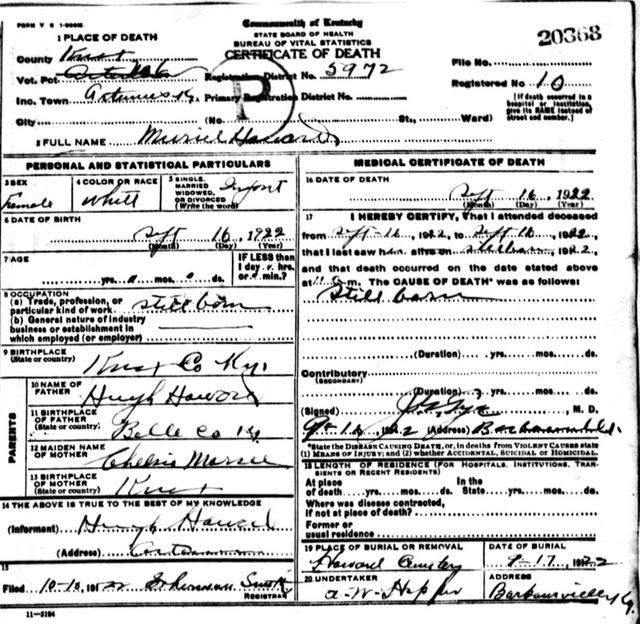 FORM V S 1-500M.
Commonwealth of Kentucky
STATE BOARD OF HEALTH
BUREAU OF VITAL STATISTICS
CERTIFICATE OF DEATH
20368
1 PLACE OF DEATH
County Knox
Vot. Pct.
Registration District No. 5972
File No.
Inc. Town Artemus Ky. Primary Registration District No.
Registered No 10
City (No St., Ward)
[If death occurred in a hospital or institution, give its NAME instead of street and number.]
2 FULL NAME Muriel Howard
PERSONAL AND STATISTICAL PARTICULARS
3 SEX Female
4 COLOR OR RACE White
5 SINGLE, MARRIED WIDOWED, OR DIVORCED (Write the word) Infant
6 DATE OF BIRTH
Sept 16, 1922
(Month) (Day) (Year)
7 AGE
yrs. mos. ds.
IF LESS than 1 day hrs. or min.?
8 OCCUPATION
(a) Trade, profession, or particular kind of work still born
(b) General nature of industry business or establishment in which employed (or employer)
9 BIRTHPLACE
(State or country) Knox Co Ky.
PARENTS
10 NAME OF FATHER Hugh Howard
11 BIRTHPLACE OF FATHER
(State or country) Belle Co Ky.
12 MAIDEN NAME OF MOTHER
13 BIRTHPLACE OF MOTHER
(State or country) Knox
14 THE ABOVE IS TRUE TO THE BEST OF MY KNOWLEDGE
(Informant) Hugh Howard
(Address)
15
Filed 10-10, 1922
REGISTRAR
11-3184
MEDICAL CERTIFICATE OF DEATH
16 DATE OF DEATH
Sept 16 1922
(Month) (Day) (Year)
17 I HEREBY CERTIFY, That I attended deceased
from Sept-16, 1922, to Sept 16, 1922,
that I last saw h alive on 1922,
and that death occurred on the date stated above
at m. The CAUSE OF DEATH* was as follows:
Still born
(Duration) yrs. mos. ds.
Contributory
(SECONDARY)
(Duration) yrs. mos. ds.
(Signed) , M. D.
1922 (Address)
*State the DISEASE CAUSING DEATH, or, in deaths from VIOLENT CAUSES state
(1) MEANS OF INJURY; and (2) whether ACCIDENTAL, SUICIDAL or HOMICIDAL.
18 LENGTH OF RESIDENCE (FOR HOSPITALS, INSTITUTIONS, TRANSIENTS OR RECENT RESIDENTS)
At place of death yrs. mos. ds.
In the State yrs. mos. ds.
Where was disease contracted, if not at place of death?
Former or usual residence
19 PLACE OF BURIAL OR REMOVAL
Howard Cemetery
DATE OF BURIAL
9-17, 1922
20 UNDERTAKER
A. W. Hopper
ADDRESS
Barbourville Ky.